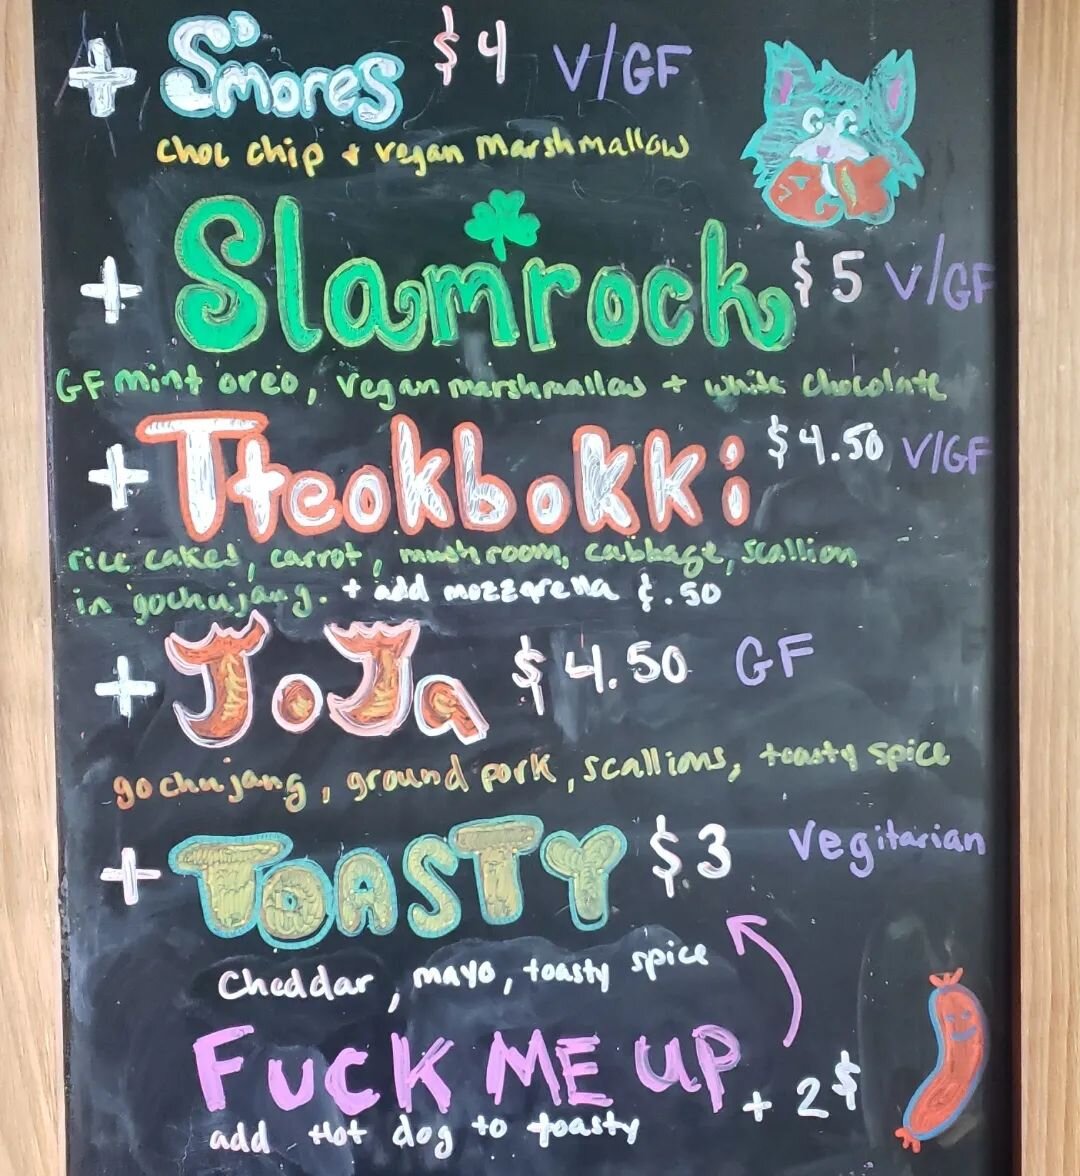 + S'mores $4 V/GF
choc chip + vegan marshmallow
+ Slamrock $5 V/GF
GF mint oreo, vegan marshmallow + white chocolate
+ Tteokbokki $4.50 V/GF
rice cakes, carrot, mushroom, cabbage, scallion
in gochujang. + add mozzarella $.50
+ JoJa $4.50 GF
gochujang, ground pork, scallions, toasty spice
+ TOASTY $3 Vegitarian
Cheddar, mayo, toasty spice
FUCK ME UP + 2$
add Hot dog to toasty